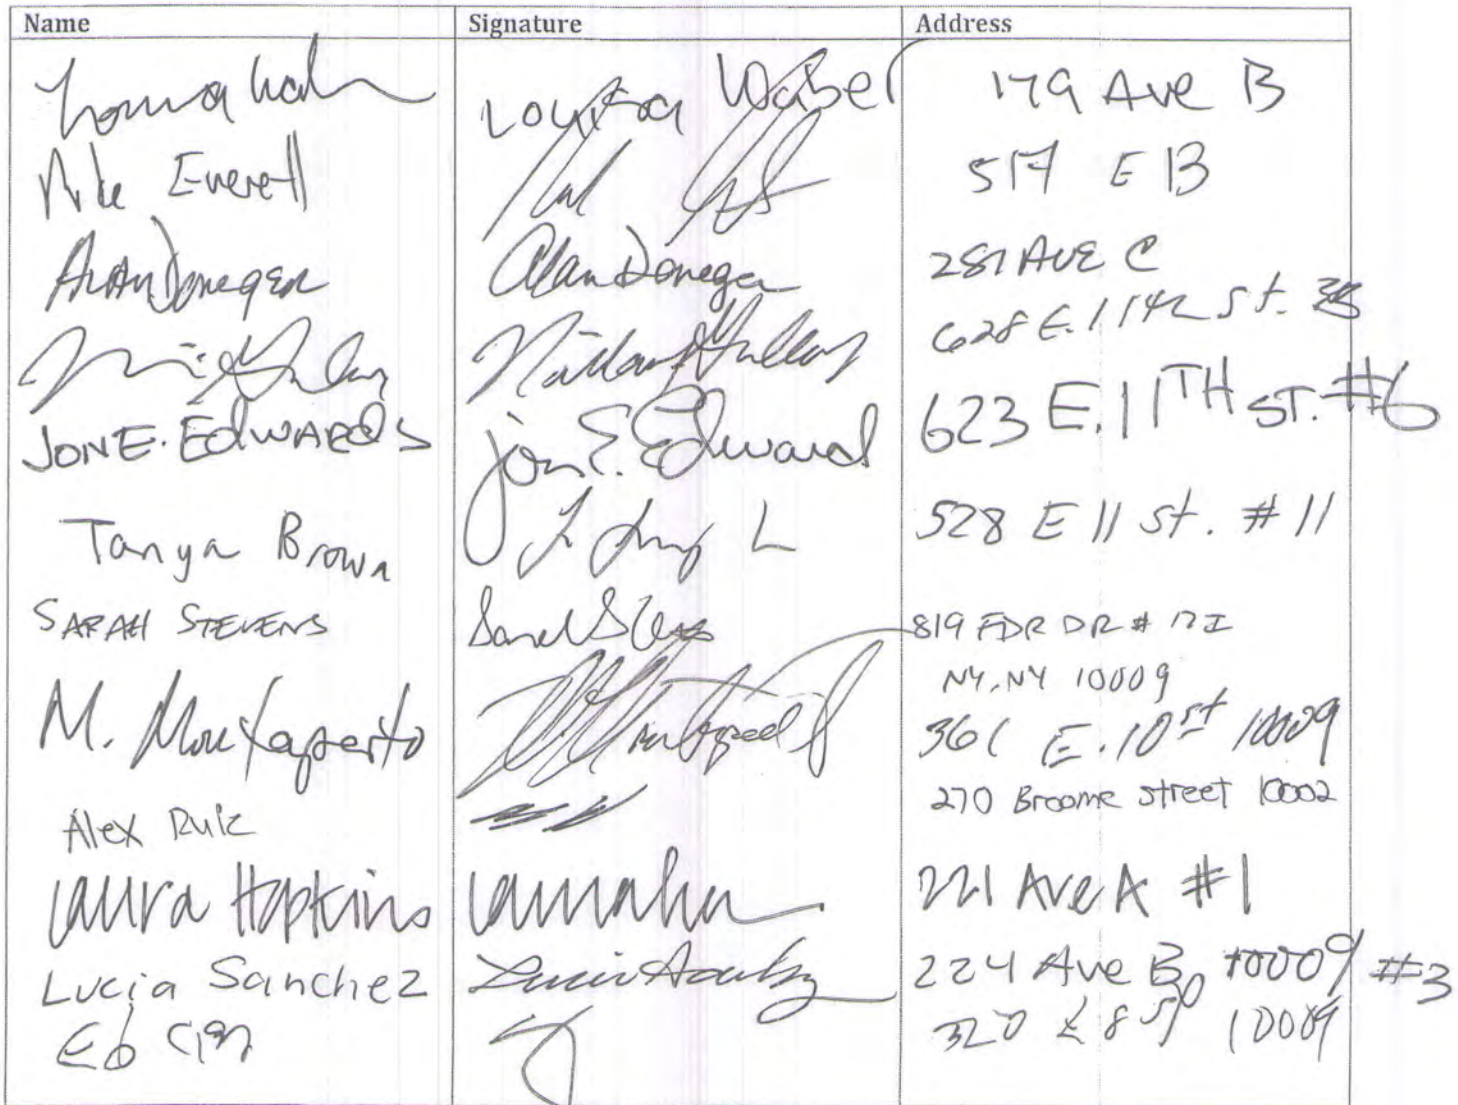 Name Signature Address
Louisa Waber 179 Ave B
Everett 517 E 13
Alan Donegan Alan Donegan 281 AVE C
628 E. 11th St.
JON E. EdwARdS Jon E. Edward 623 E. 11TH ST. #6
Tanya Brown 528 E 11 St. #11
SARAH STEVENS 819 FDR DR # 12I
NY, NY 10009
M. Montaperto 361 E. 10st 10009
Alex Ruiz 270 Broome street 10002
Laura Hopkins 221 Ave A #1
Lucia Sanchez 224 Ave B 10009 #3
320 E 8 10009